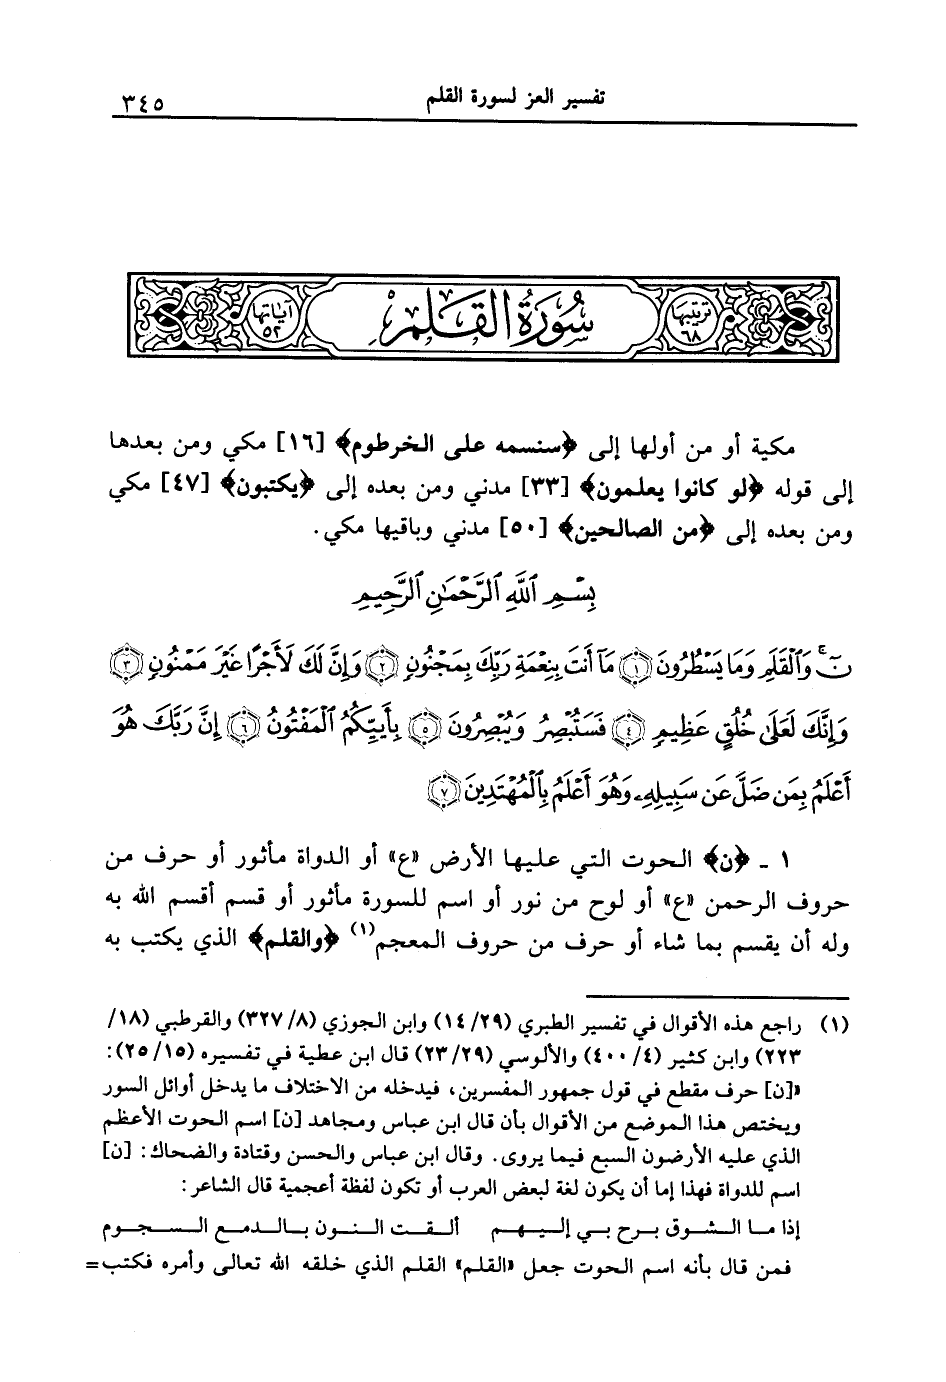 تفسير العز لسورة القلم
٣٤٥
ترتيبها ٦٨
سُورَةُ القَلَمِ
آياتها ٥٢
مكية أو من أولها إلى ﴿سنسمه على الخرطوم﴾ [١٦] مكي ومن بعدها
إلى قوله ﴿لو كانوا يعلمون﴾ [٣٣] مدني ومن بعده إلى ﴿يكتبون﴾ [٤٧] مكي
ومن بعده إلى ﴿من الصالحين﴾ [٥٠] مدني وباقيها مكي.
بِسْمِ ٱللَّهِ ٱلرَّحْمَٰنِ ٱلرَّحِيمِ
نٓ ۚ وَٱلْقَلَمِ وَمَا يَسْطُرُونَ ١ مَآ أَنتَ بِنِعْمَةِ رَبِّكَ بِمَجْنُونٍ ٢ وَإِنَّ لَكَ لَأَجْرًا غَيْرَ مَمْنُونٍ ٣
وَإِنَّكَ لَعَلَىٰ خُلُقٍ عَظِيمٍ ٤ فَسَتُبْصِرُ وَيُبْصِرُونَ ٥ بِأَييِّكُمُ ٱلْمَفْتُونُ ٦ إِنَّ رَبَّكَ هُوَ
أَعْلَمُ بِمَن ضَلَّ عَن سَبِيلِهِۦ وَهُوَ أَعْلَمُ بِٱلْمُهْتَدِينَ ٧
١ ـ ﴿ن﴾ الحوت التي عليها الأرض «ع» أو الدواة مأثور أو حرف من
حروف الرحمن «ع» أو لوح من نور أو اسم للسورة مأثور أو قسم أقسم الله به
وله أن يقسم بما شاء أو حرف من حروف المعجم(١) ﴿والقلم﴾ الذي يكتب به
(١) راجع هذه الأقوال في تفسير الطبري (١٤/٢٩) وابن الجوزي (٣٢٧/٨) والقرطبي (١٨/
٢٢٣) وابن كثير (٤٠٠/٤) والألوسي (٢٣/٢٩) قال ابن عطية في تفسيره (٢٥/١٥):
«[ن] حرف مقطع في قول جمهور المفسرين، فيدخله من الاختلاف ما يدخل أوائل السور
ويختص هذا الموضع من الأقوال بأن قال ابن عباس ومجاهد [ن] اسم الحوت الأعظم
الذي عليه الأرضون السبع فيما يروى. وقال ابن عباس والحسن وقتادة والضحاك: [ن]
اسم للدواة فهذا إما أن يكون لغة لبعض العرب أو تكون لفظة أعجمية قال الشاعر:
إذا ما الشوق برح بي إليهم ألقت النون بالدمع السجوم
فمن قال بأنه اسم الحوت جعل «القلم» القلم الذي خلقه الله تعالى وأمره فكتب =